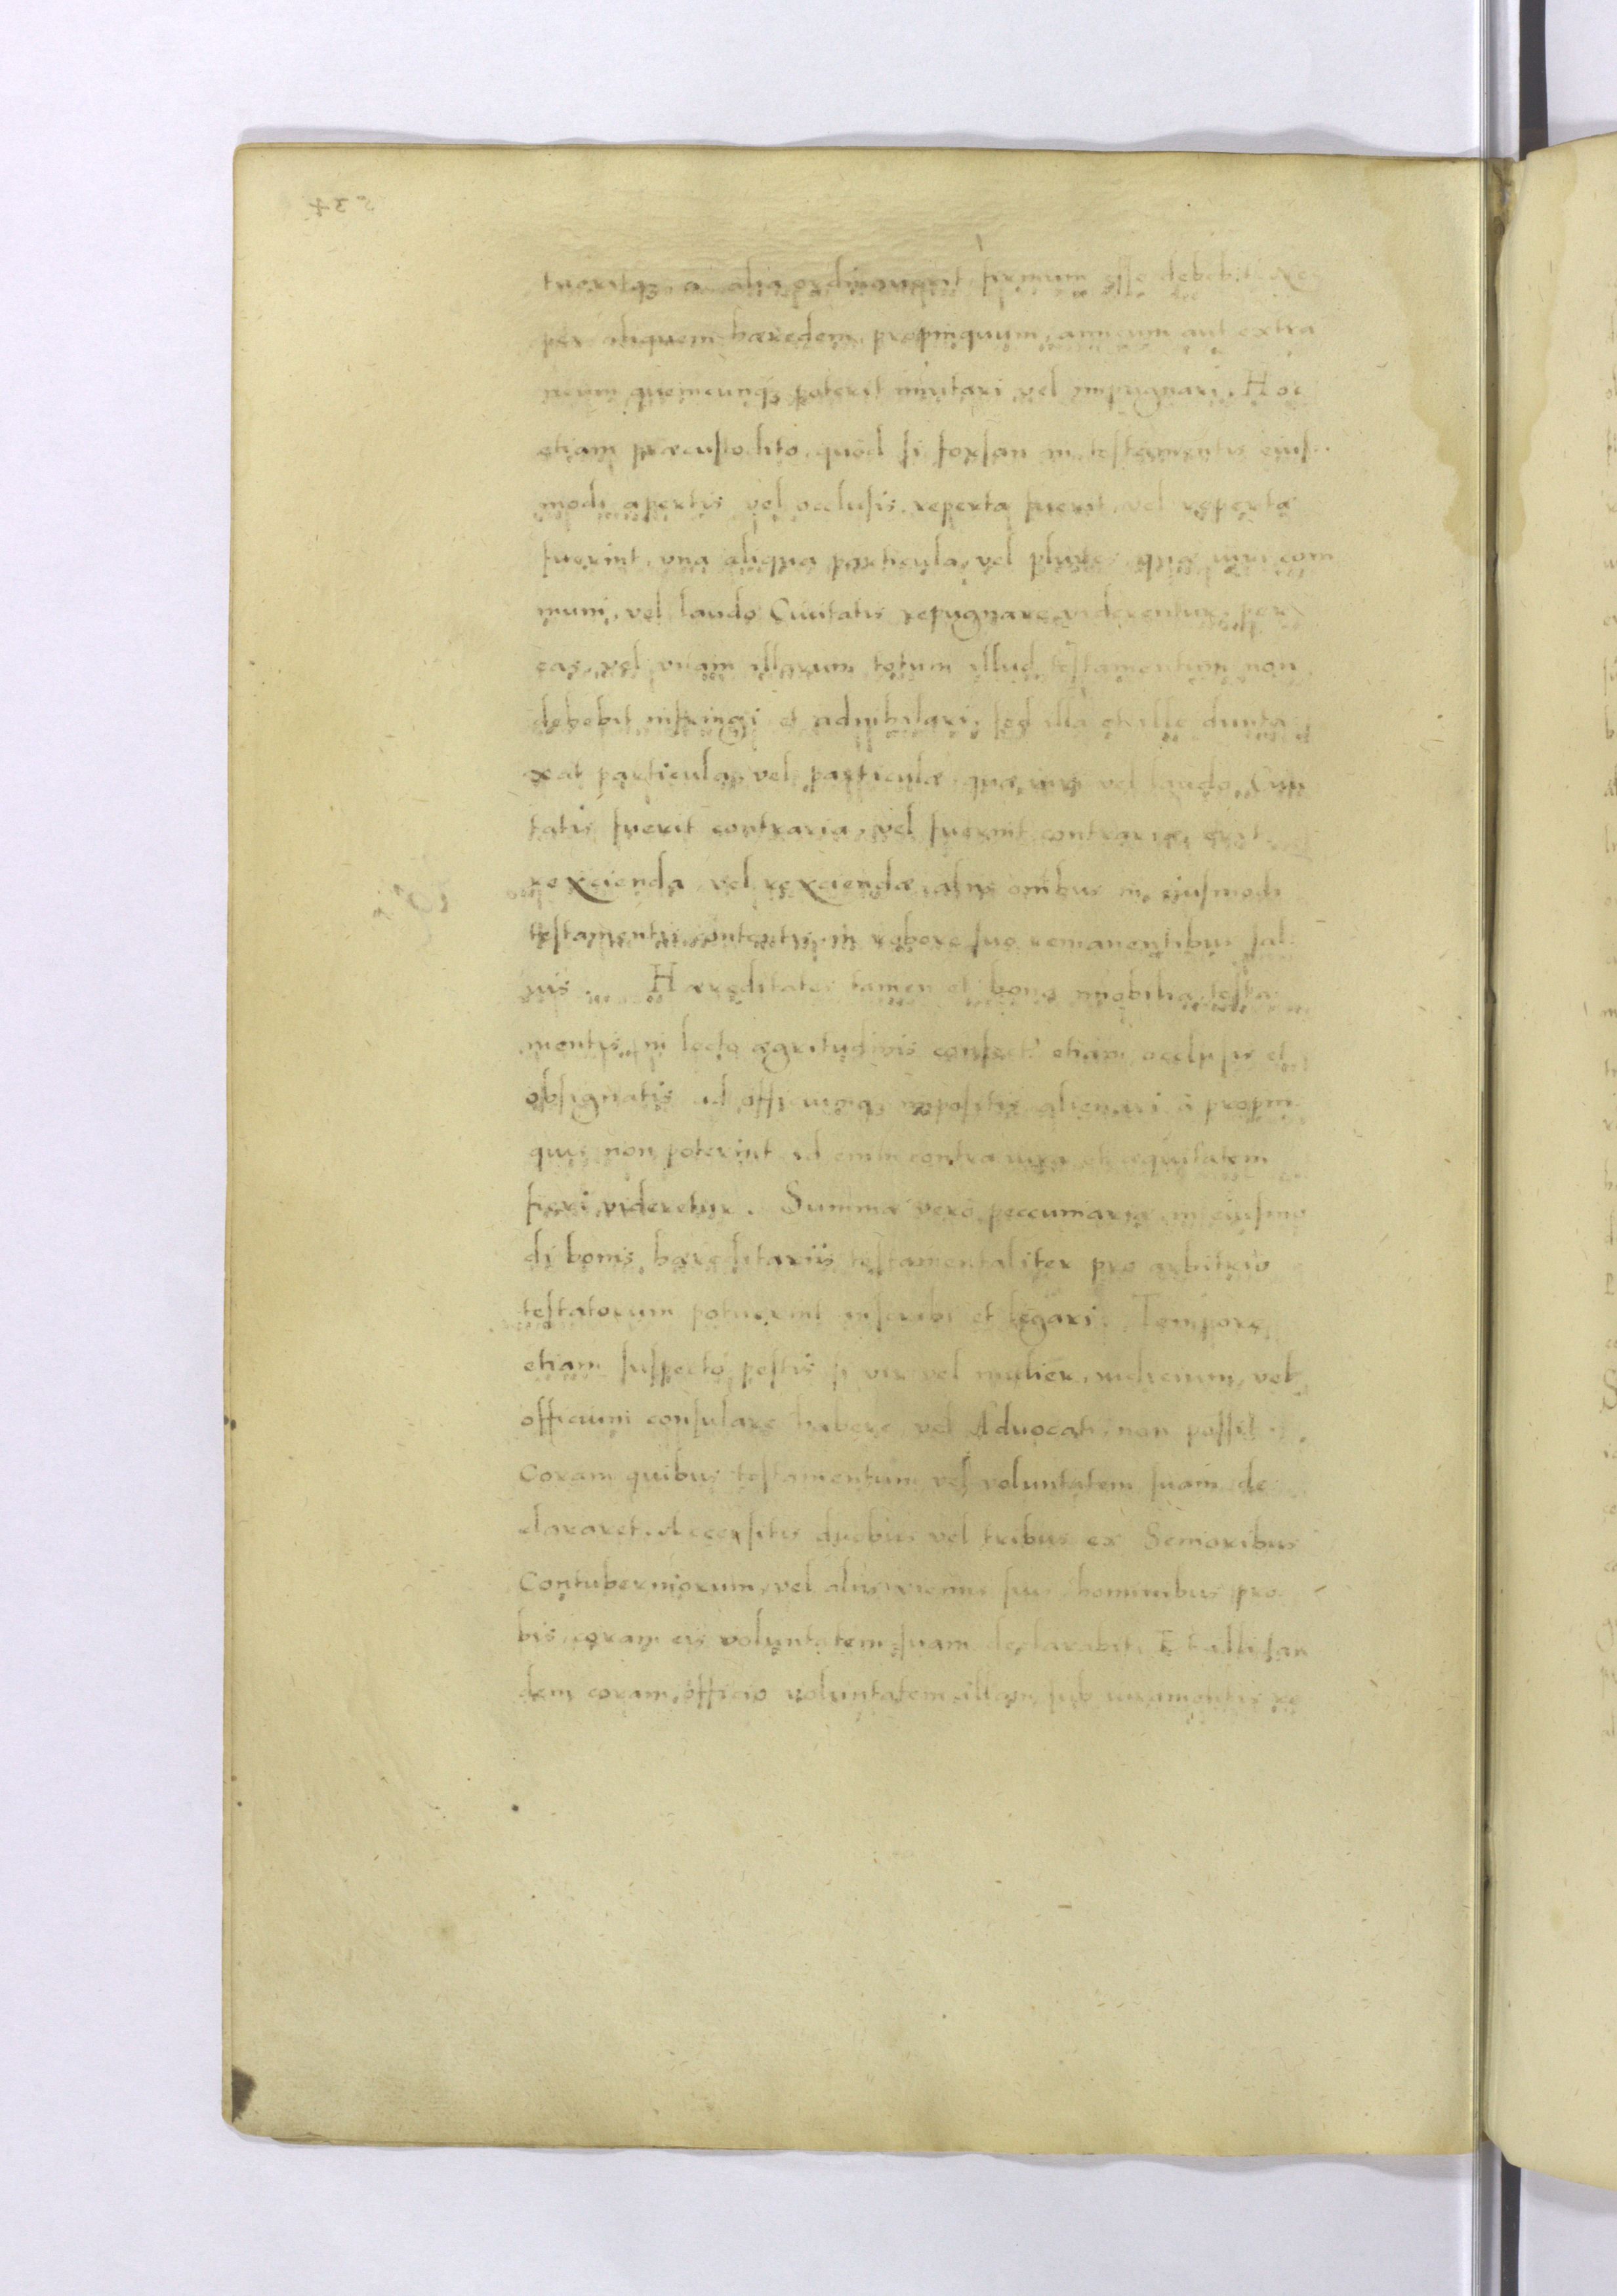 tueritque a alia ordinauerit, firmum esse debebit. Nec
per aliquem hæredem, propinquum, amicum aut extra
neum quemcunque poterit mutari vel impugnari. Hoc
etiam præcustodito, quod si forsan in testamentis eius
modi apertis vel occlusis, reperta fuerit, vel repertæ
fuerint, vna aliqua particula, vel plures, quæ iuri com
muni, vel laudo Ciuitatis repugnare viderentur, per
eas, vel vnam illarum totum illud testamentum non
debebit infringi et adnihilari, sed illa et illæ dunta
xat particula, vel particulæ, quæ iuri vel laudo Ciui
tatis fuerit contraria, vel fuerint contrariæ, erit
reycienda vel reyciendæ, alys omibus in eiusmodi
testamentis contentis, in robore suo remanentibus sal
uis. Hæreditates tamen et bona imobilia, testa
mentis in lecto ægritudinis confect: etiam occlusis et
obsignatis ad officiumque repositis alienari a propin
quis non poterint id enim contra iura et æquitatem
fieri videretur. Summæ vero peccuniariæ in eiusmo
di bonis hæreditariis testamentaliter pro arbitrio
testatorum potuerint inscribi et legari. Tempore
etiam suspecto pestis si vir vel mulier, iudicium, vel
officium consulare habere vel Aduocati non possit,
Coram quibus testamentum vel voluntatem suam de
clararet. Accersitis duobus vel tribus ex Senioribus
Contuberniorum, vel aliis vicinis suis hominibus pro
bis, coram eis voluntatem suam declarabit. Et illi tan
dem coram officio voluntatem illam sub iuramentis re